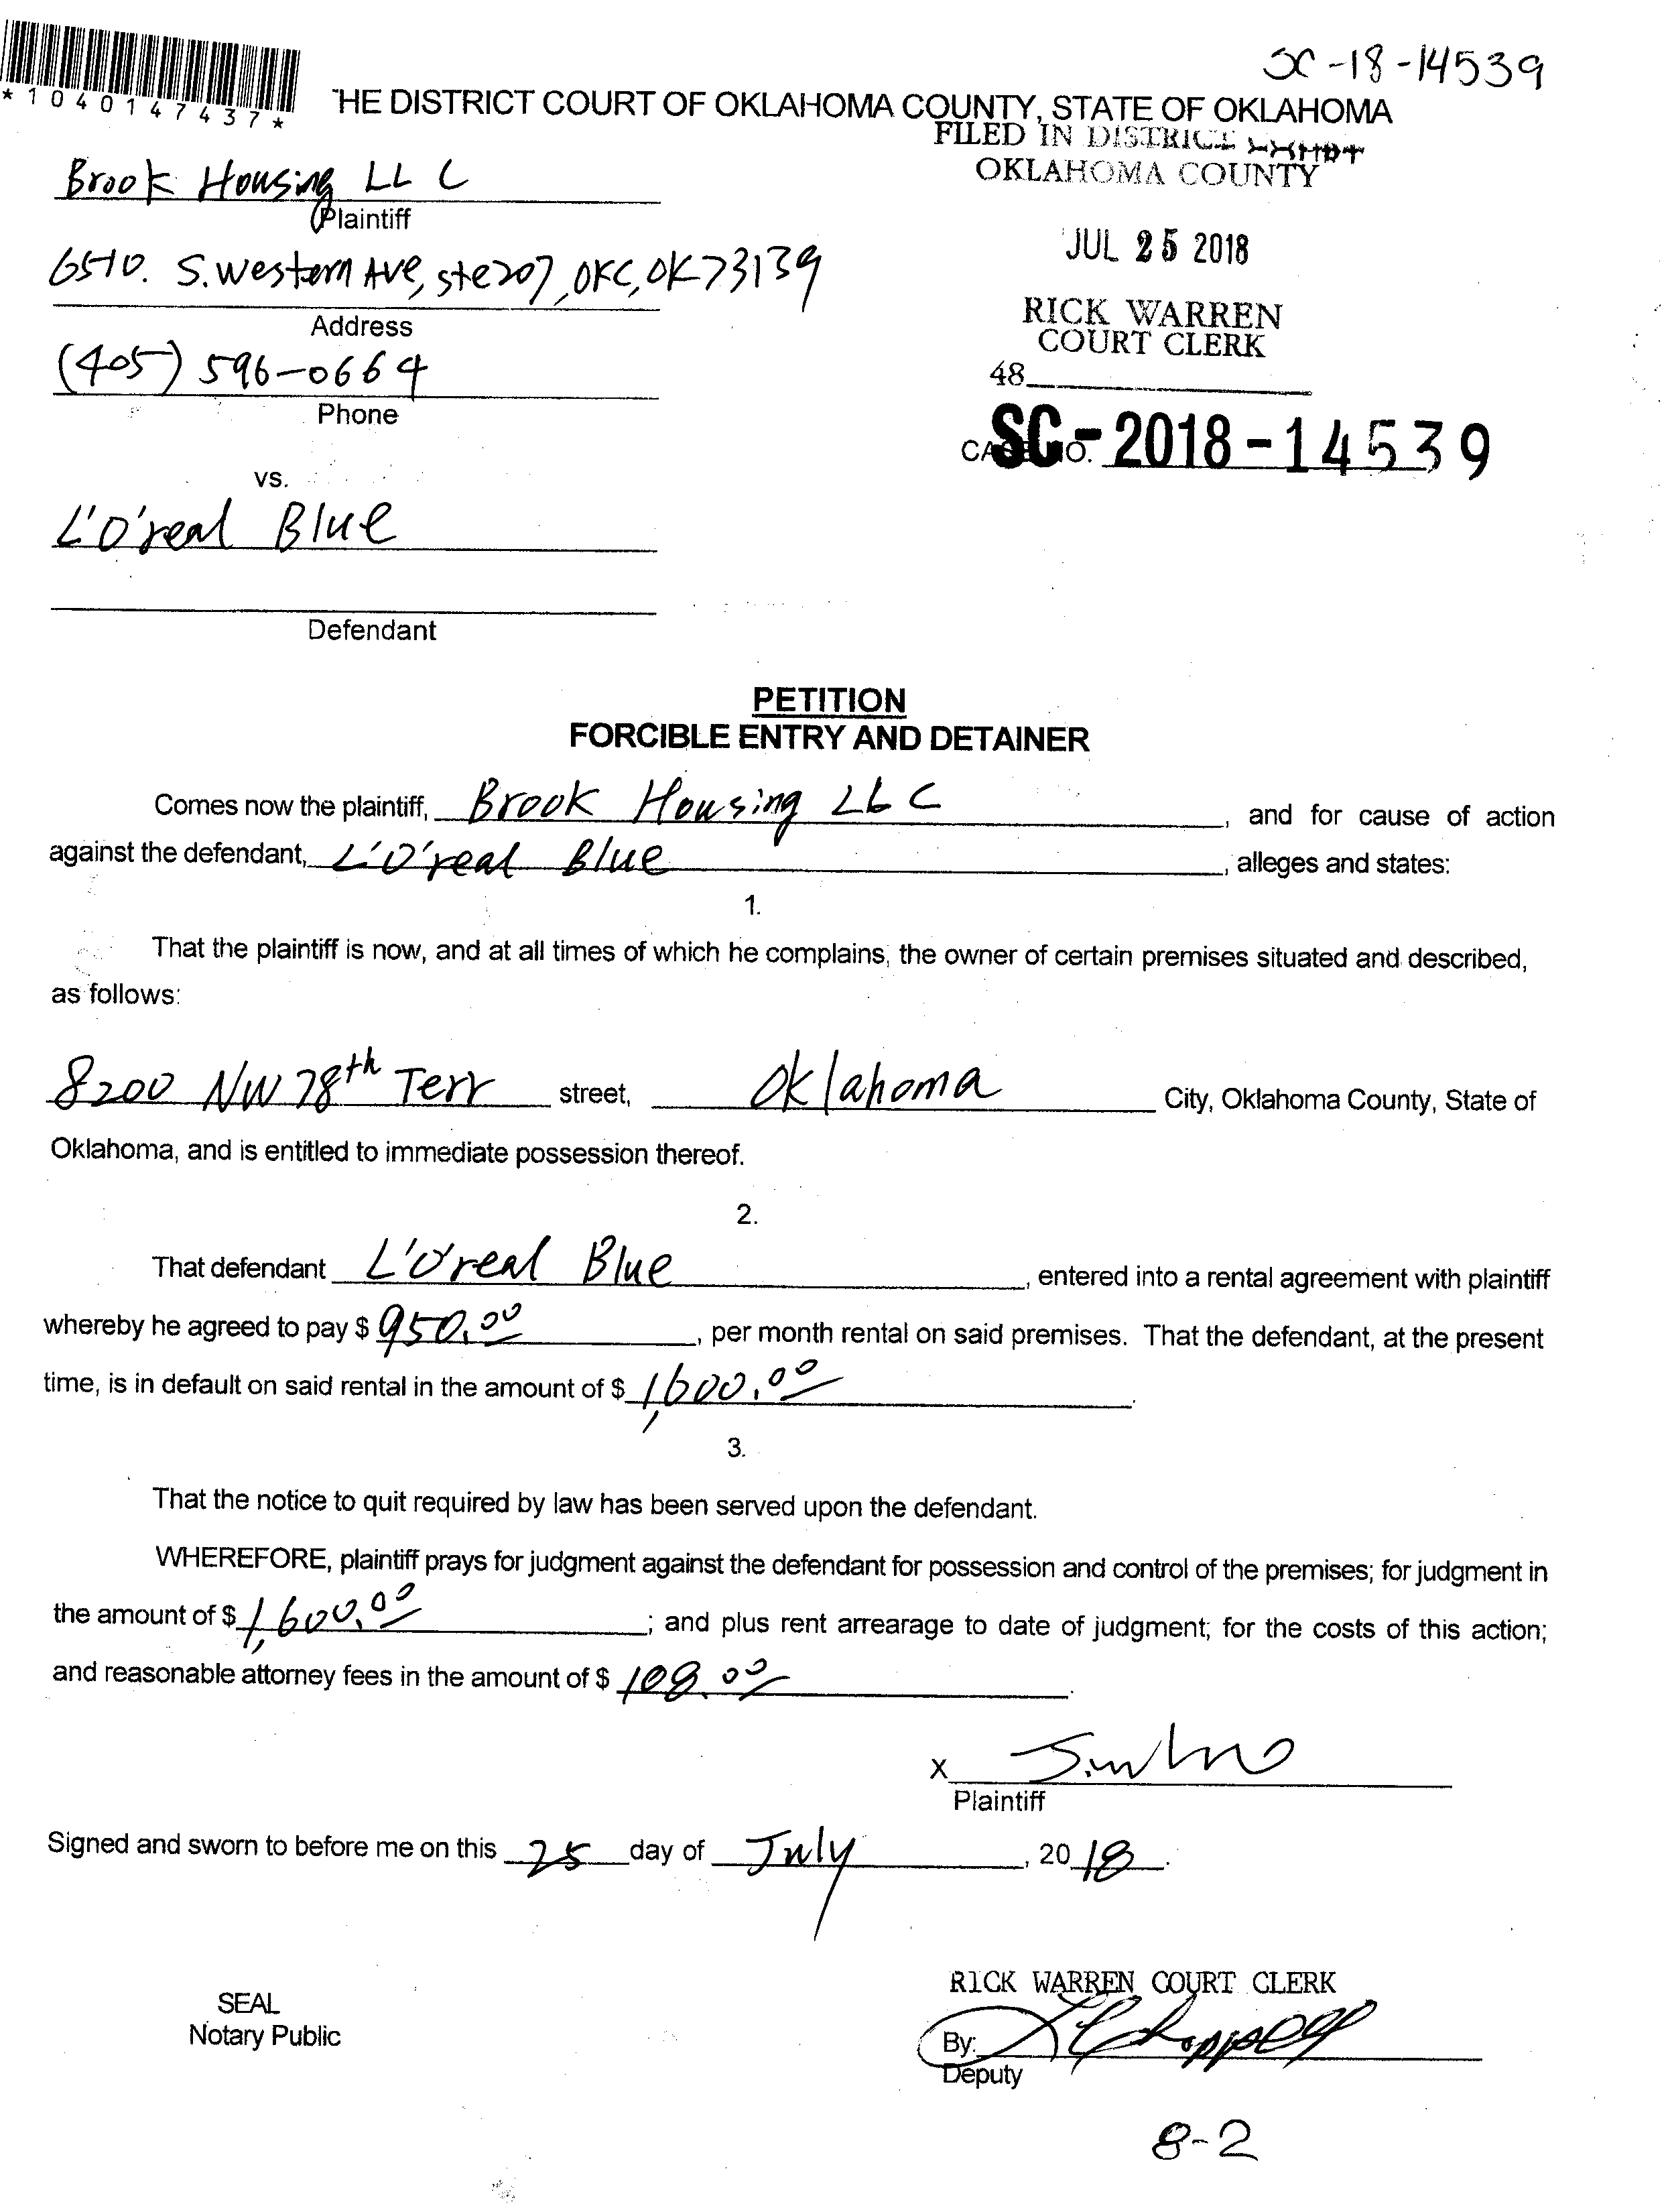 SC-18-14539
*1040147437*
THE DISTRICT COURT OF OKLAHOMA COUNTY, STATE OF OKLAHOMA
FILED IN DISTRICT COURT
OKLAHOMA COUNTY
Brook Housing LLC
Plaintiff
JUL 25 2018
6510. S. Western Ave, ste 207, OKC, OK 73139
Address
RICK WARREN
COURT CLERK
(405) 596-0664
48
Phone
CASE NO. SC-2018-14539
vs.
L'O'real Blue
Defendant
PETITION
FORCIBLE ENTRY AND DETAINER
Comes now the plaintiff, Brook Housing LLC, and for cause of action
against the defendant, L'O'real Blue, alleges and states:
1.
That the plaintiff is now, and at all times of which he complains, the owner of certain premises situated and described,
as follows:
8200 NW 78th Terr street, Oklahoma City, Oklahoma County, State of
Oklahoma, and is entitled to immediate possession thereof.
2.
That defendant L'O'real Blue, entered into a rental agreement with plaintiff
whereby he agreed to pay $ 950.00, per month rental on said premises. That the defendant, at the present
time, is in default on said rental in the amount of $ 1,600.00.
3.
That the notice to quit required by law has been served upon the defendant.
WHEREFORE, plaintiff prays for judgment against the defendant for possession and control of the premises; for judgment in
the amount of $ 1,600.00; and plus rent arrearage to date of judgment; for the costs of this action;
and reasonable attorney fees in the amount of $ 108.00.
X
Plaintiff
Signed and sworn to before me on this 25 day of July, 2018.
RICK WARREN COURT CLERK
SEAL
Notary Public
By:
Deputy
8-2